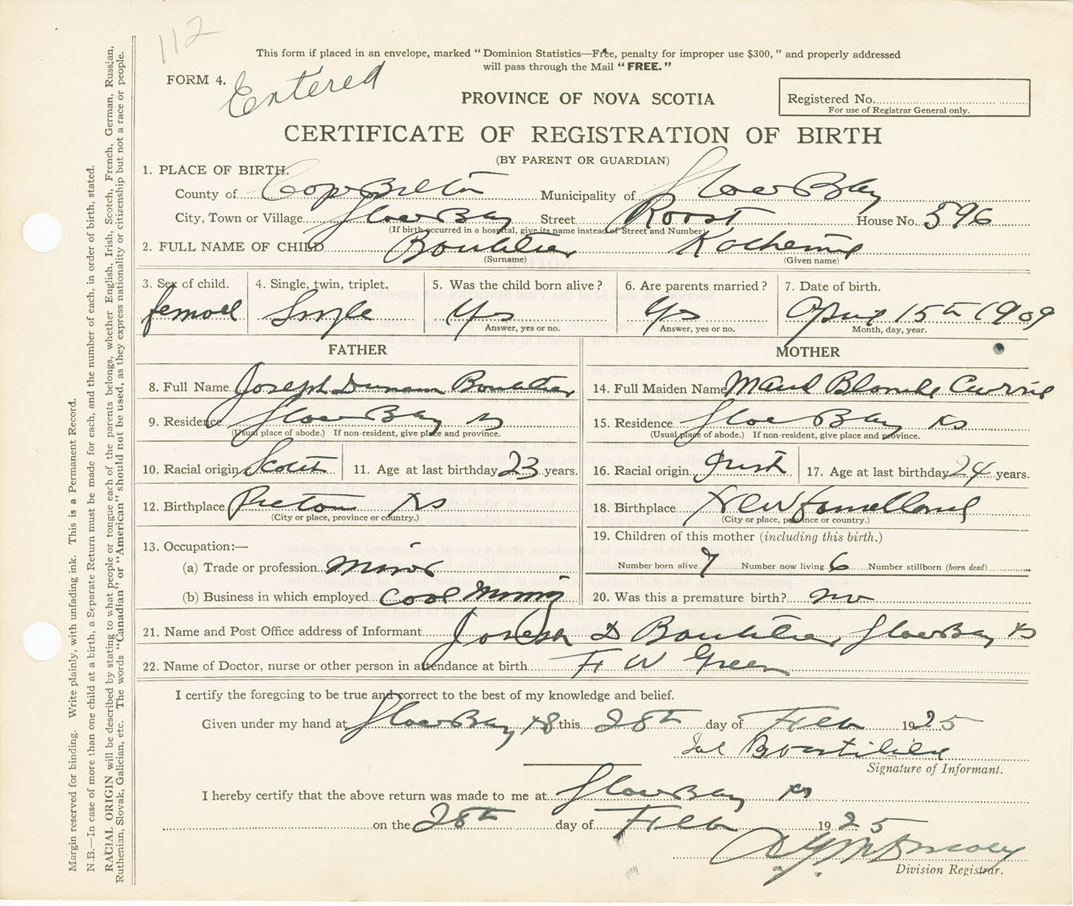 112
This form if placed in an envelope, marked "Dominion Statistics—Free, penalty for improper use $300," and properly addressed
will pass through the Mail "FREE."
FORM 4. Entered
PROVINCE OF NOVA SCOTIA
Registered No.
For use of Registrar General only.
CERTIFICATE OF REGISTRATION OF BIRTH
(BY PARENT OR GUARDIAN)
1. PLACE OF BIRTH.
County of Cape Breton Municipality of Glace Bay
City, Town or Village Glace Bay Street Roost House No. 596
(If birth occurred in a hospital, give its name instead of Street and Number)
2. FULL NAME OF CHILD Boutilier Katherine
(Surname) (Given name)
3. Sex of child. 4. Single, twin, triplet. 5. Was the child born alive? 6. Are parents married? 7. Date of birth.
femael Single Yes Yes April 15th 1909
Answer, yes or no. Answer, yes or no. Month, day, year.
FATHER MOTHER
8. Full Name Joseph Duncan Boutilier 14. Full Maiden Name Maud Blanche Currie
9. Residence Glace Bay NS 15. Residence Glace Bay NS
(Usual place of abode.) If non-resident, give place and province. (Usual place of abode.) If non-resident, give place and province.
10. Racial origin 11. Age at last birthday 23 years. 16. Racial origin Irish 17. Age at last birthday 24 years.
12. Birthplace Pictou NS 18. Birthplace Newfoundland
(City or place, province or country.) (City or place, province or country.)
13. Occupation:— 19. Children of this mother (including this birth.)
(a) Trade or profession Minor Number born alive 7 Number now living 6 Number stillborn (born dead)
(b) Business in which employed Coal Mining 20. Was this a premature birth? no
21. Name and Post Office address of Informant Joseph D Boutilier, Glace Bay NS
22. Name of Doctor, nurse or other person in attendance at birth. Green
I certify the foregoing to be true and correct to the best of my knowledge and belief.
Given under my hand at Glace Bay NS this 28th day of Feb 1925
Boutilier
Signature of Informant.
I hereby certify that the above return was made to me at Glace Bay NS
on the 28th day of Feb 1925
Division Registrar.
Margin reserved for binding. Write plainly, with unfading ink. This is a Permanent Record.
N.B.—In case of more than one child at a birth, a Separate Return must be made for each, and the number of each, in order of birth, stated.
RACIAL ORIGIN will be described by stating to what people or tongue each of the parents belongs, whether English, Irish, Scotch, French, German, Russian,
Ruthenian, Slovak, Galician, etc. The words "Canadian" or "American" should not be used, as they express nationality or citizenship but not a race or people.